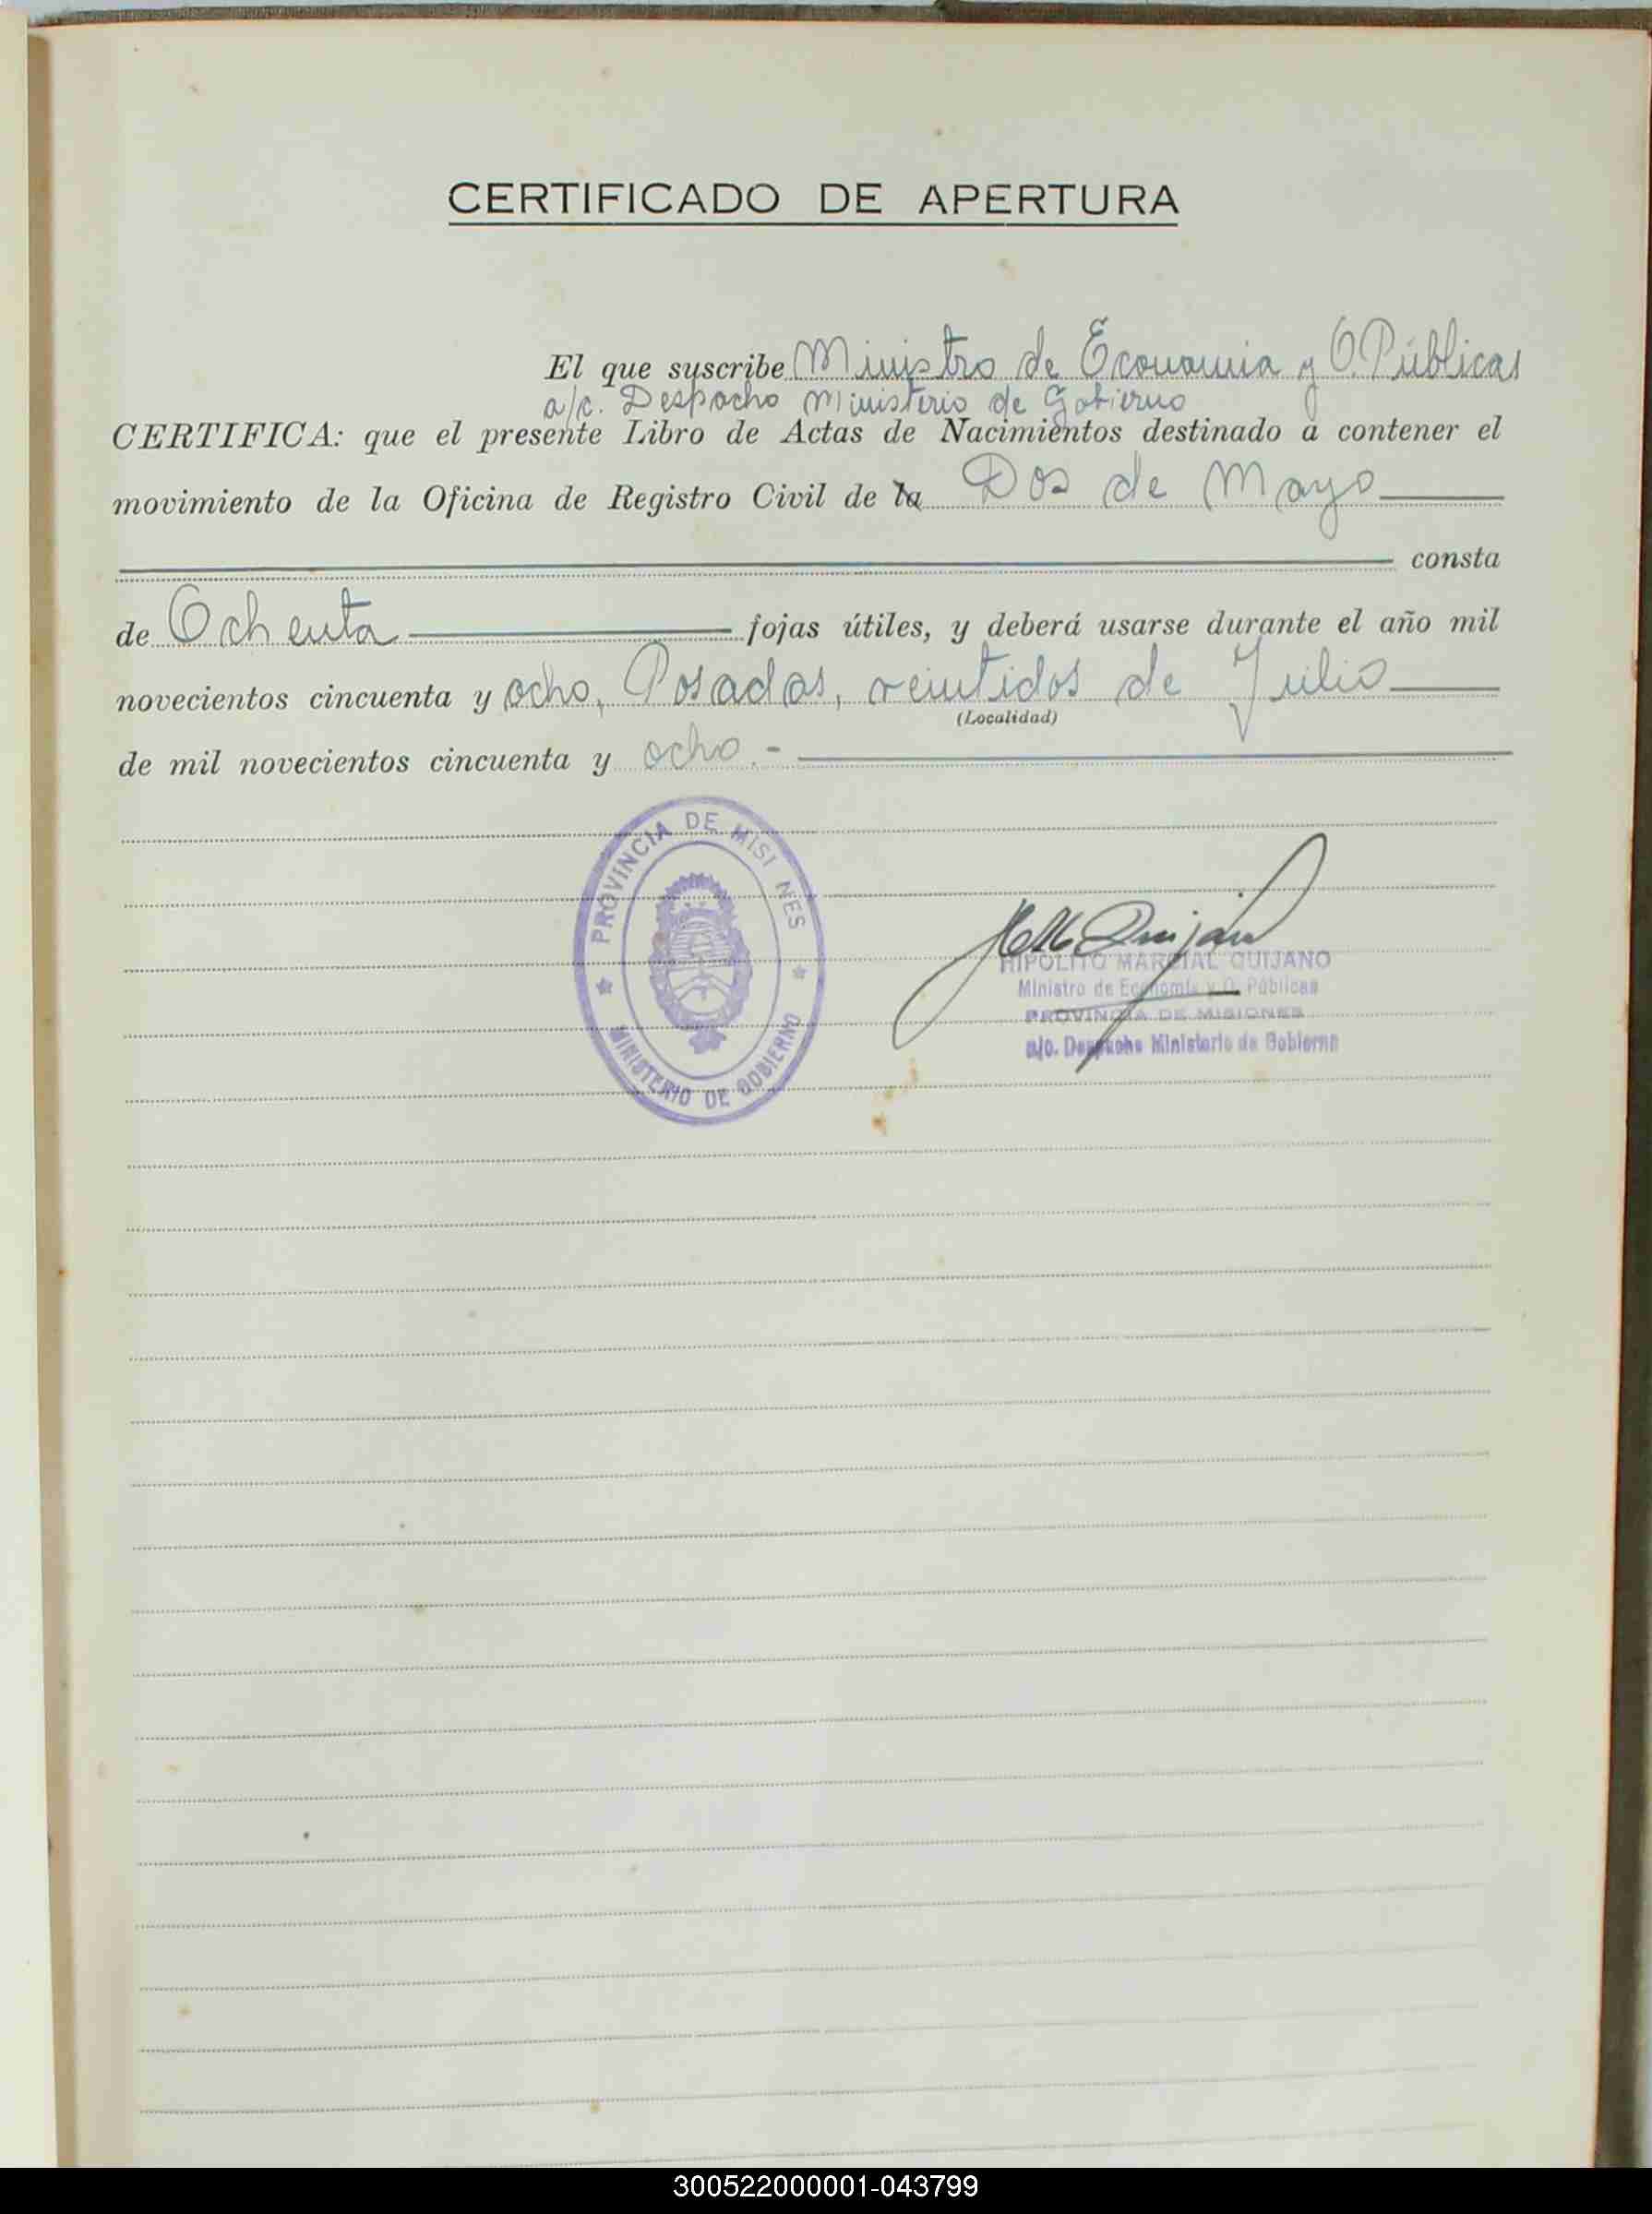 CERTIFICADO DE APERTURA
El que suscribe Ministro de Economia y O. Públicas
a/c. Despacho Ministerio de Gobierno
CERTIFICA: que el presente Libro de Actas de Nacimientos destinado a contener el
movimiento de la Oficina de Registro Civil de la Dos de Mayo
consta
de Ochenta fojas útiles, y deberá usarse durante el año mil
novecientos cincuenta y ocho, Posadas, veintidos de Julio
(Localidad)
de mil novecientos cincuenta y ocho.-
PROVINCIA DE MISI NES
MINISTERIO DE GOBIERNO
HMQuijano
HIPOLITO MARCIAL QUIJANO
Ministro de Economía y O. Públicas
PROVINCIA DE MISIONES
a/c. Despacho Ministerio de Gobierno
300522000001-043799